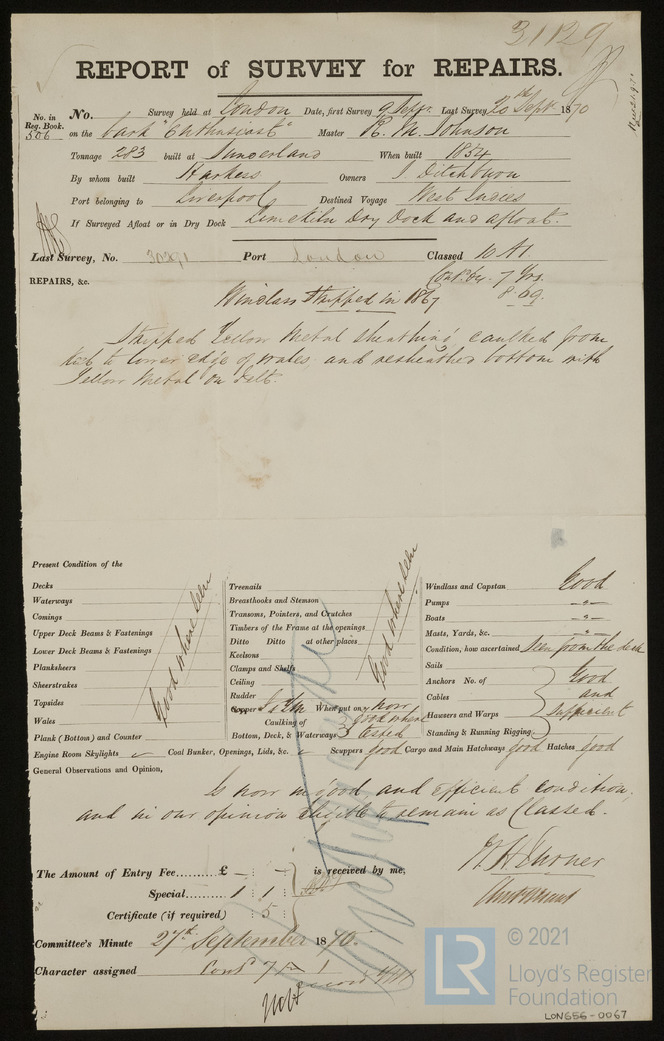 31129
REPORT of SURVEY for REPAIRS.
No. in Reg. Book. 506
No. Survey held at London Date, first Survey 9 Sept. Last Survey 20th Sept. 1870
on the bark "Enthusiast" Master R. M. Johnson
Tonnage 283 built at Sunderland When built 1854
By whom built Harkess Owners J. Ditchburn
Port belonging to Liverpool Destined Voyage West Indies
If Surveyed Afloat or in Dry Dock Limekiln Dry Dock and afloat.
Last Survey, No. 30291 Port London Classed 10 A1.
Cont. 64. 7 Yrs.
REPAIRS, &c.
8.69.
Windlass Stripped in 1867
Stripped Yellow Metal Sheathing, caulked from
keel to lower edge of wales and resheathed bottom with
Yellow Metal on Felt.
Present Condition of the
Decks
Waterways
Comings
Upper Deck Beams & Fastenings
Lower Deck Beams & Fastenings
Planksheers
Sheerstrakes
Topsides
Wales
Plank (Bottom) and Counter
Good where seen
Treenails
Breasthooks and Stemson
Transoms, Pointers, and Crutches
Timbers of the Frame at the openings
Ditto Ditto at other places
Keelsons
Clamps and Shelfs
Ceiling
Rudder
Good where seen
Copper Y. M. When put on now
Caulking of Bottom, Deck, & Waterways good where tested
Windlass and Capstan Good
Pumps -"-
Boats -"-
Masts, Yards, &c. -"-
Condition, how ascertained Seen from the deck
Sails
Anchors No. of
Cables
Hawsers and Warps
Standing & Running Rigging
Good and sufficient
Engine Room Skylights ✓ Coal Bunker, Openings, Lids, &c. ✓ Scuppers good Cargo and Main Hatchways good Hatches good
General Observations and Opinion,
Is now in good and efficient condition,
and in our opinion eligible to remain as Classed.
The Amount of Entry Fee......... £ - : - : is received by me,
Special......... 1 1
Certificate (if required) : 5 :
Committee's Minute 27th September 1870.
Character assigned Cont. 7 A 1
© 2021
LR
Lloyd's Register
Foundation
LON656-0067